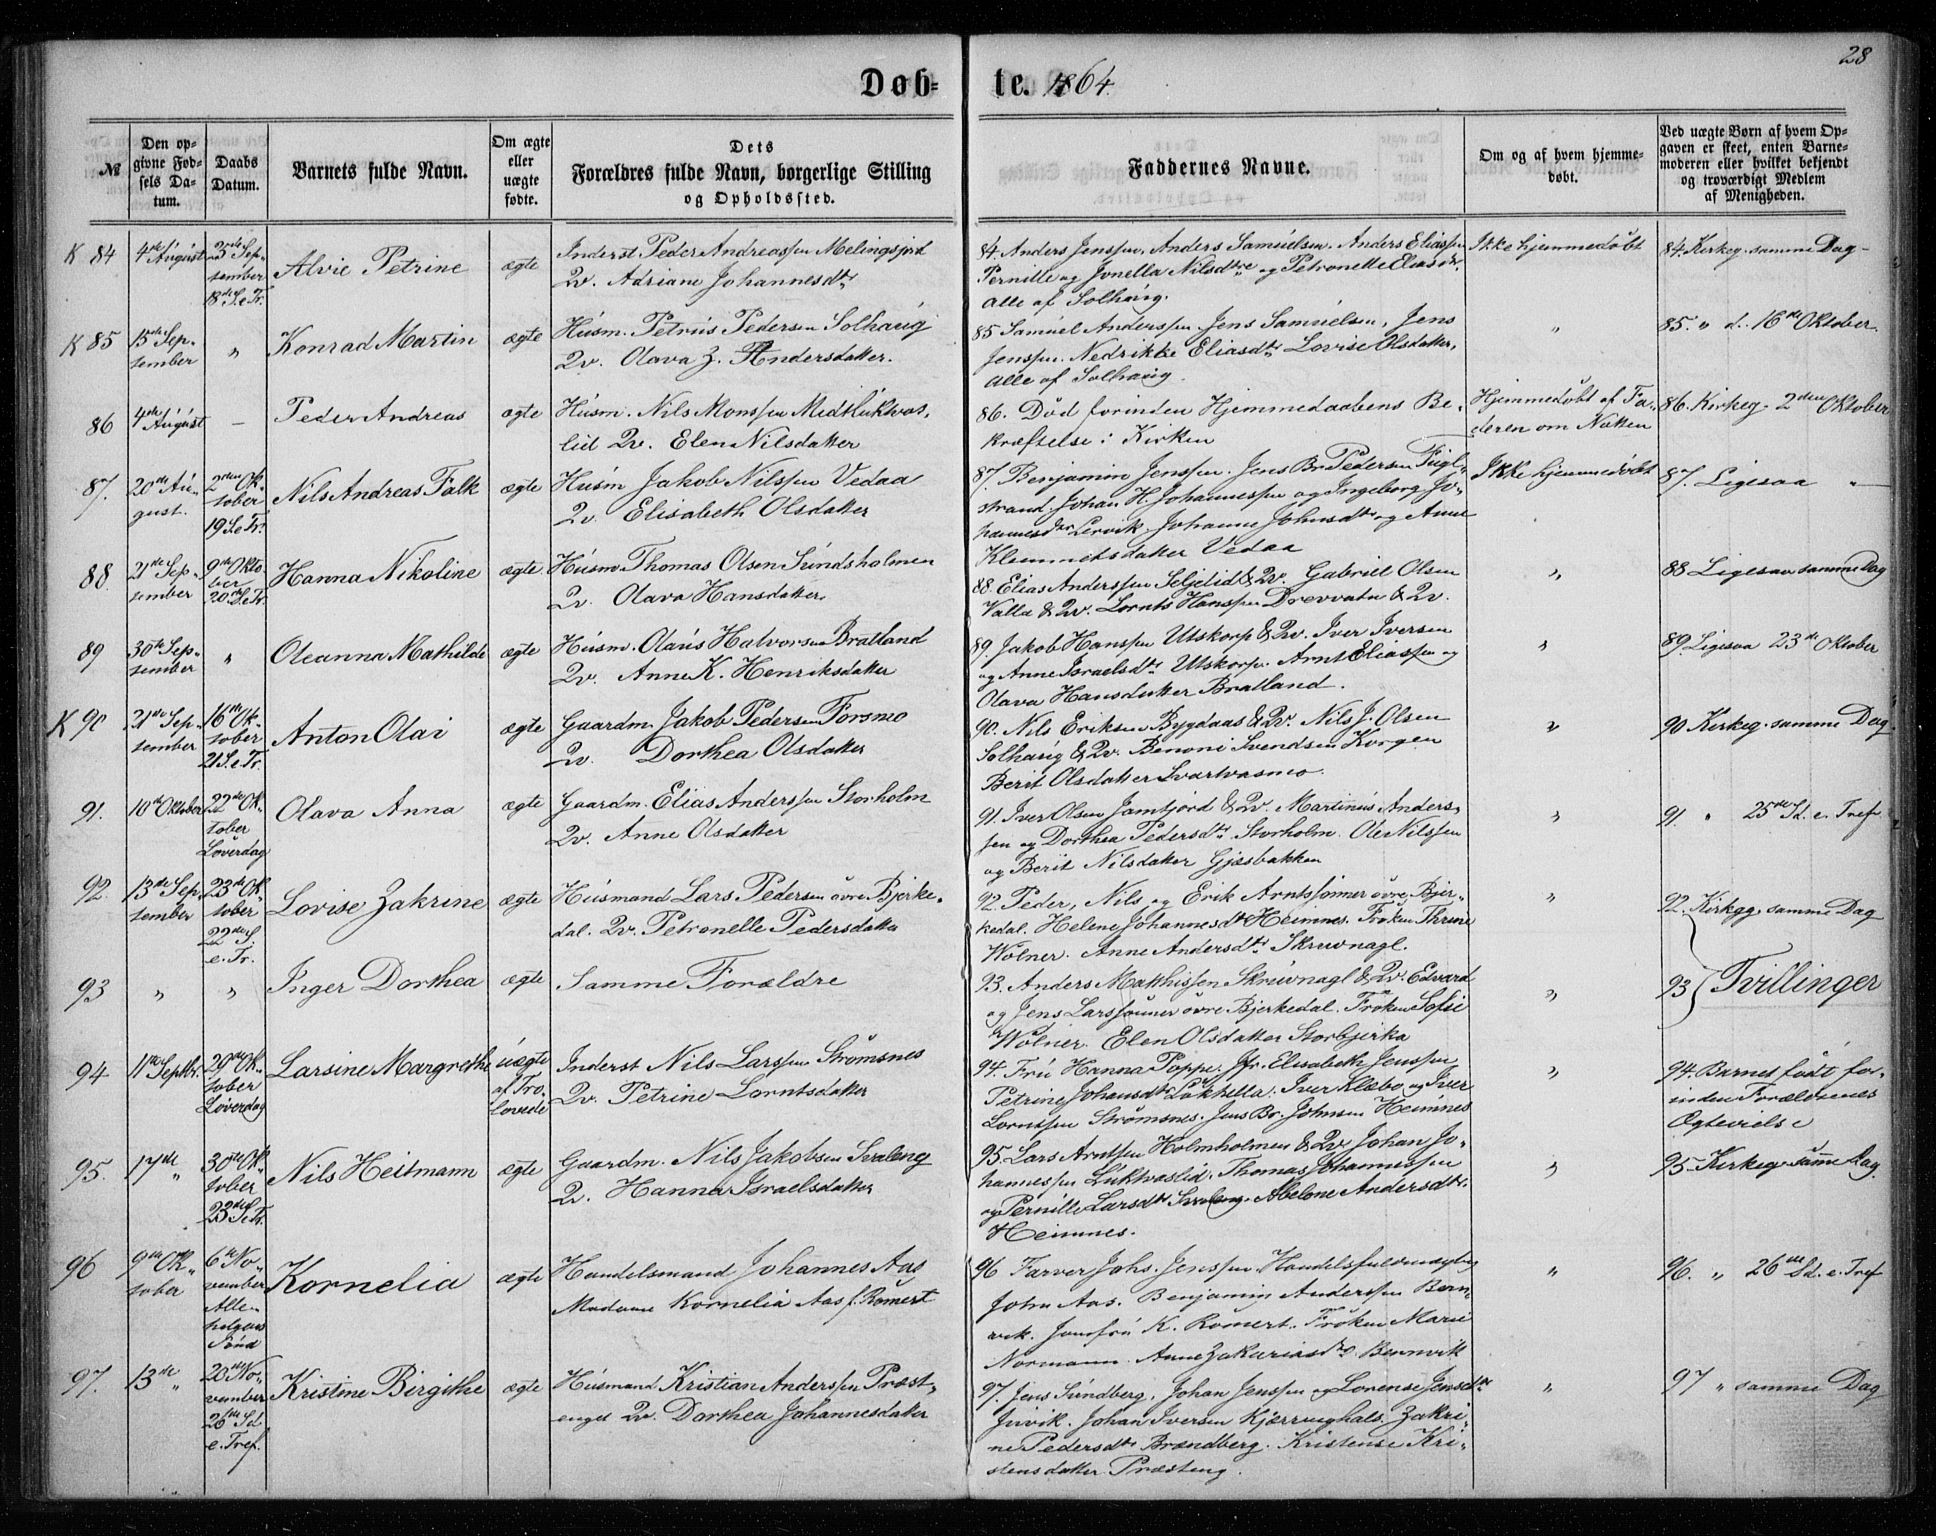 28
Døb- te. 1864.
№
Den opgivne Fødsels Datum.
Daabs Datum.
Barnets fulde Navn.
Om ægte eller uægte fødte.
Dets
Forældres fulde Navn, borgerlige Stilling
og Opholdssted.
Faddernes Navne.
Om og af hvem hjemmedøbt.
Ved uægte Børn af hvem Opgaven er skeet, enten Barnemoderen eller hvilket bekjendt og troværdigt Medlem af Menigheden.
K 84
4de August
25de September
18de S. e. Tr.
Alvie Petrine
ægte
Inderst Peder Andreassen Melingsjord
Qv. Adriane Johannesdtr
84. Anders Jenssen, Anders Samuelsen, Anders Eliassen
Pernille og Jonella Nilsdtre og Petronelle Eliasdtr.
alle af Solhaug.
Ikke hjemmedøbt
84. Kirkeg. samme Dag
K 85
15de September
"
Konrad Martin
ægte
Husm. Petrus Pedersen Solhaug
Qv. Olava Z. Andersdatter.
85 Samuel Anderssen, Jens Samuelsen, Jens
Jenssen. Nedrikke Eliasdtr Lovise Olsdatter,
alle af Solhaug.
"
85. " d. 16de Oktober
86
4de August
-
Peder Andreas
ægte
Husm. Nils Monssen Midtluktvas-
lid Qv. Elen Nilsdatter
86. Død forinden Hjemmedaabens Be-
kræftelse i Kirken
Hjemmedøbt af Fa-
deren om Natten
86. Kirkeg. 2den Oktober
87.
20de August.
2den Oktober
19 S. e. Tr.
Nils Andreas Falk
ægte
Husm Jakob Nilssen Vedaa
Qv. Elisabeth Olsdatter
87. Benjamin Jenssen. Jens Br. Pedersen Fugl-
strand. Johan H. Johannessen og Ingeborg Jo-
hannesdtr Lervik. Johanne Johnsdtr og Anne
Klemmetsdatter Vedaa
Ikke hjemmedøbt
87. Ligesaa "
88.
21de September
9de Oktober
20de S. e. Tr.
Hanna Nikoline
ægte
Husm Thomas Olsen Sundsholmen
Qv. Olava Hansdatter
88. Elias Anderssen Seljelid & Qv. Gabriel Olsen
Valla & Qv. Lornts Hanssen Drevvatn & Qv.
"
88 Ligesaa samme Dag
89
30te September
"
Oleanna Mathilde
ægte
Husm. Olaus Halvorsen Bratland
Qv. Anne K. Henriksdatter
89 Jakob Hanssen Utskorp & Qv. Iver Iversen
og Anne Israelsdtr Utskorp. Arnt Eliassen og
Olava Hansdatter Bratland.
"
89. Ligesaa 23de Oktober
K 90
21de September
16de Oktober
21 S. e. Tr.
Anton Olai
ægte
Gaardm. Jakob Pedersen Forsmo
Qv. Dorthea Olsdatter
90. Nils Eriksen Bygdaas & Qv. Nils J. Olsen
Solhaug & Qv. Benoni Svendsen Korgen
Berit Olsdatter Svartvasmo.
"
90 Kirkeg. samme Dag
91.
10de Oktober
22de Oktober
Løverdag
Olava Anna
ægte
Gaardm. Elias Anderssen Storholm
Qv. Anne Olsdatter
91. Iver Olsen Jamtjord & Qv. Martinus Anders-
sen og Dorthea Pedersdtr Storholm. Ole Nilssen
og Berit Nilsdatter Gjæsbakken
"
91. " 25de Sd. e. Tref
92
13de September
23de Oktober
22de S. e. Tr.
Lovise Zakrine
ægte
Husmand Lars Pedersen øvre Bjerke-
dal. Qv. Petronelle Pedersdatter
92. Peder, Nils og Erik Arntssønner øvre Bjer-
kedal. Helene Johannesdtr Hemnes. Frøken Thrine
Wolner. Anne Andersdtr Skruvnagl.
"
92. Kirkgg. samme Dag
93
"
"
Inger Dorthea
ægte
Samme Forældre
93. Anders Matthissen Skruvnagl & Qv. Edvard
og Jens Larssønner øvre Bjerkedal. Frøken Sofie
Wolner. Elen Olsdatter Storbjerka
"
93 Tvillinger
94
11te Septbr.
29de Oktober
Løverdag
Larsine Margrethe
uægte
af Tro-
lovede
Inderst Nils Larssen Strømsnes
Qv. Petrine Lorntsdatter
94. Fru Hanna Poppe. Jfr. Elisabeth Jenssen
Petrine Johansdtr Lukthella. Iver Klæbo og Iver
Lorntsen Strømsnes. Jens Br. Johnsen Hemnes
"
94. Barnet født for-
inden Forældrenes
Ægtevielse
95.
17de "
30de Oktober
23de S. e. Tr.
Nils Heitmann
ægte
Gaardm. Nils Jakobsen Svaleng
Q. Hanna Israelsdatter
95. Lars Arntsen Holmholmen & Qv. Johan Jo-
hannessen Luktvaslid. Thomas Johannessen
og Pernille Larsdtr Svaleng. Abelone Andersdtr.
Hemnes.
"
95. Kirkeg. samme Dag.
96
9de Oktober
6te November
Allehelgens
Sønd
Kornelia
ægte
Handelsmand Johannes Aas
Madame Kornelia Aas f. Romert
96 Farver Johs. Jenssen. Handelsfuldmægtig
John Aas. Benjamin Anderssen Bern-
vik. Jomfru K. Romert. Frøken Marie
Normann. Anne Zakariasdtr. Bennvik
"
96. " 26de Sd. e. Tref
97.
13de "
20de November
26de Sd.
e. Tref.
Kristine Birgithe
ægte
Husmand Kristian Anderssen Præst-
enget Qv. Dorthea Johannesdatter
97. Jens Sundberg, Johan Jenssen og Lorense Jensdtr
Juvik. Johan Iversen Kjærringhals. Zakri-
ne Pedersdtr Brændberg. Kristense Kri-
stensdatter Præsteng.
"
97 " samme Dag